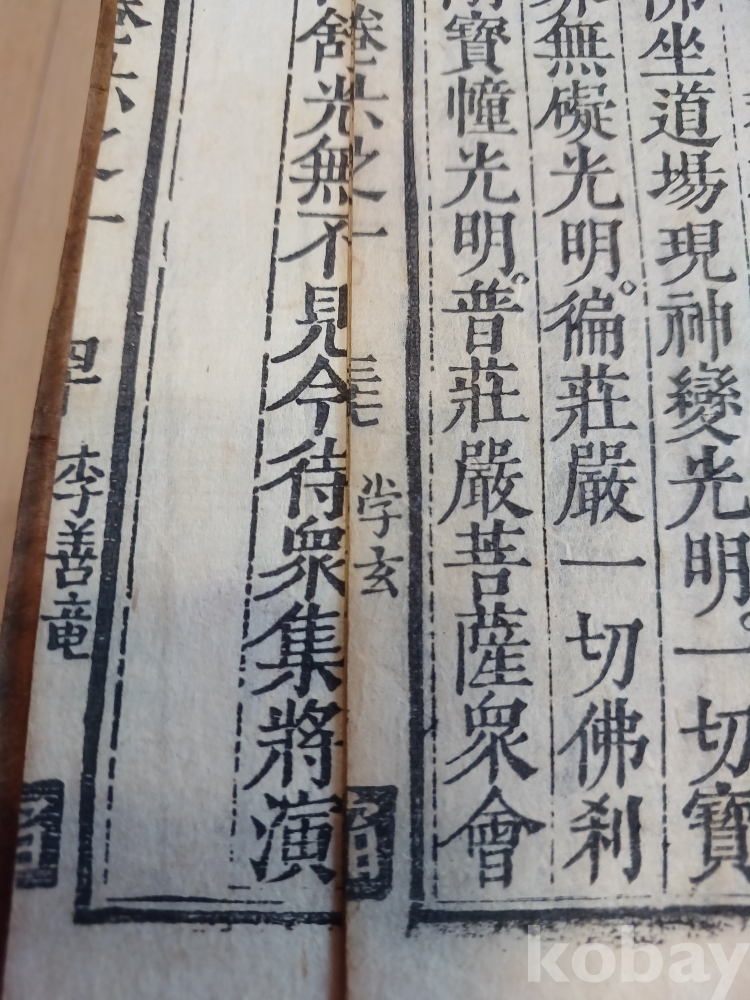 佛坐道場現神變光明。一切寶
無礙光明。徧莊嚴一切佛刹
寶幢光明。普莊嚴菩薩衆會
三七
学玄
舒光無不見今待衆集將演
卷六之一
四十
李善竜
kobay